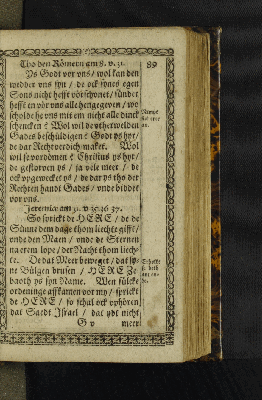 Tho den Römern am 8. v. 31.
89
Ys Godt vor vns / wol kan den
wedder vns syn / de ock synes egen
Söns nicht hefft vörschonet / sünder
hefft en vör vns alle hengegeven / wo
scholde he vns mit em nicht alle dinck
schencken? Wol wil de vtherwelden
Gades beschüldigen? Godt ys hyr /
de dar Rechtverdich maket. Wol
wil se vordömen? Christus ys hyr /
de gestorven ys / ja vele meer / de
ock vpgewecket ys / de dar ys tho der
Rechten handt Gades / vnde biddet
vor vns.
Jeremiæ am 31. v. 35. 36. 37.
So sprickt de HERE / de de
Sünne dem dage thom liechte gifft /
vnde den Maen / vnde de Sternen
na erem lope / der Nacht thom liech-
te. De dat Meer beweget / dat sy-
ne Bülgen brusen / HERE Ze-
baoth ys syn Name. Wen sülcke
ordeninge affkamen vor my / sprickt
de HERE / so schal ock vphören
dat Saedt Israel / dat ydt nicht
G v
meer